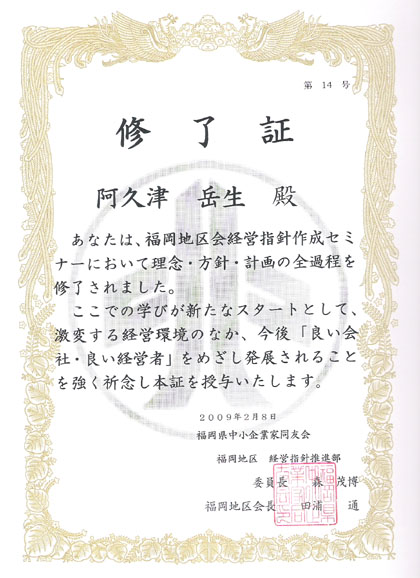 第 14 号
修了証
阿久津 岳生 殿
あなたは、福岡地区会経営指針作成セミ
ナーにおいて理念・方針・計画の全過程を
修了されました。
ここでの学びが新たなスタートとして、
激変する経営環境のなか、今後「良い会
社・良い経営者」をめざし発展されること
を強く祈念し本証を授与いたします。
2009年2月8日
福岡県中小企業家同友会
福岡地区 経営指針推進部
委員長 森 茂博
福岡地区会長 田浦 通